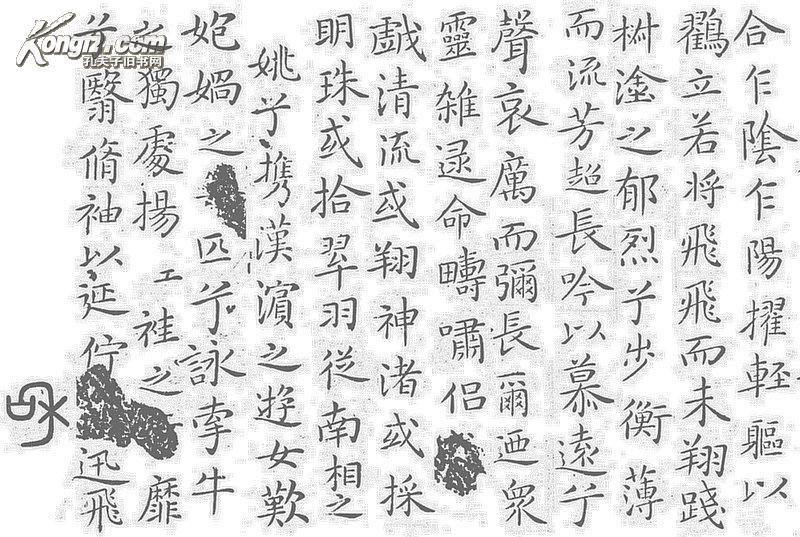 合乍陰乍陽擢輕軀以
鸖立若将飛飛而未翔踐
椒塗之郁烈兮步衡薄
而流芳超長吟以慕遠兮
聲哀厲而彌長爾迺衆
靈雜遝命疇嘯侣
戯清流或翔神渚或採
明珠或拾翠羽從南相之
姚兮携漢濱之遊女歎
妃媧之匹兮詠牽牛
獨處揚袿之靡
翳脩袖以延佇迅飛
Kongfz.com
孔夫子旧书网